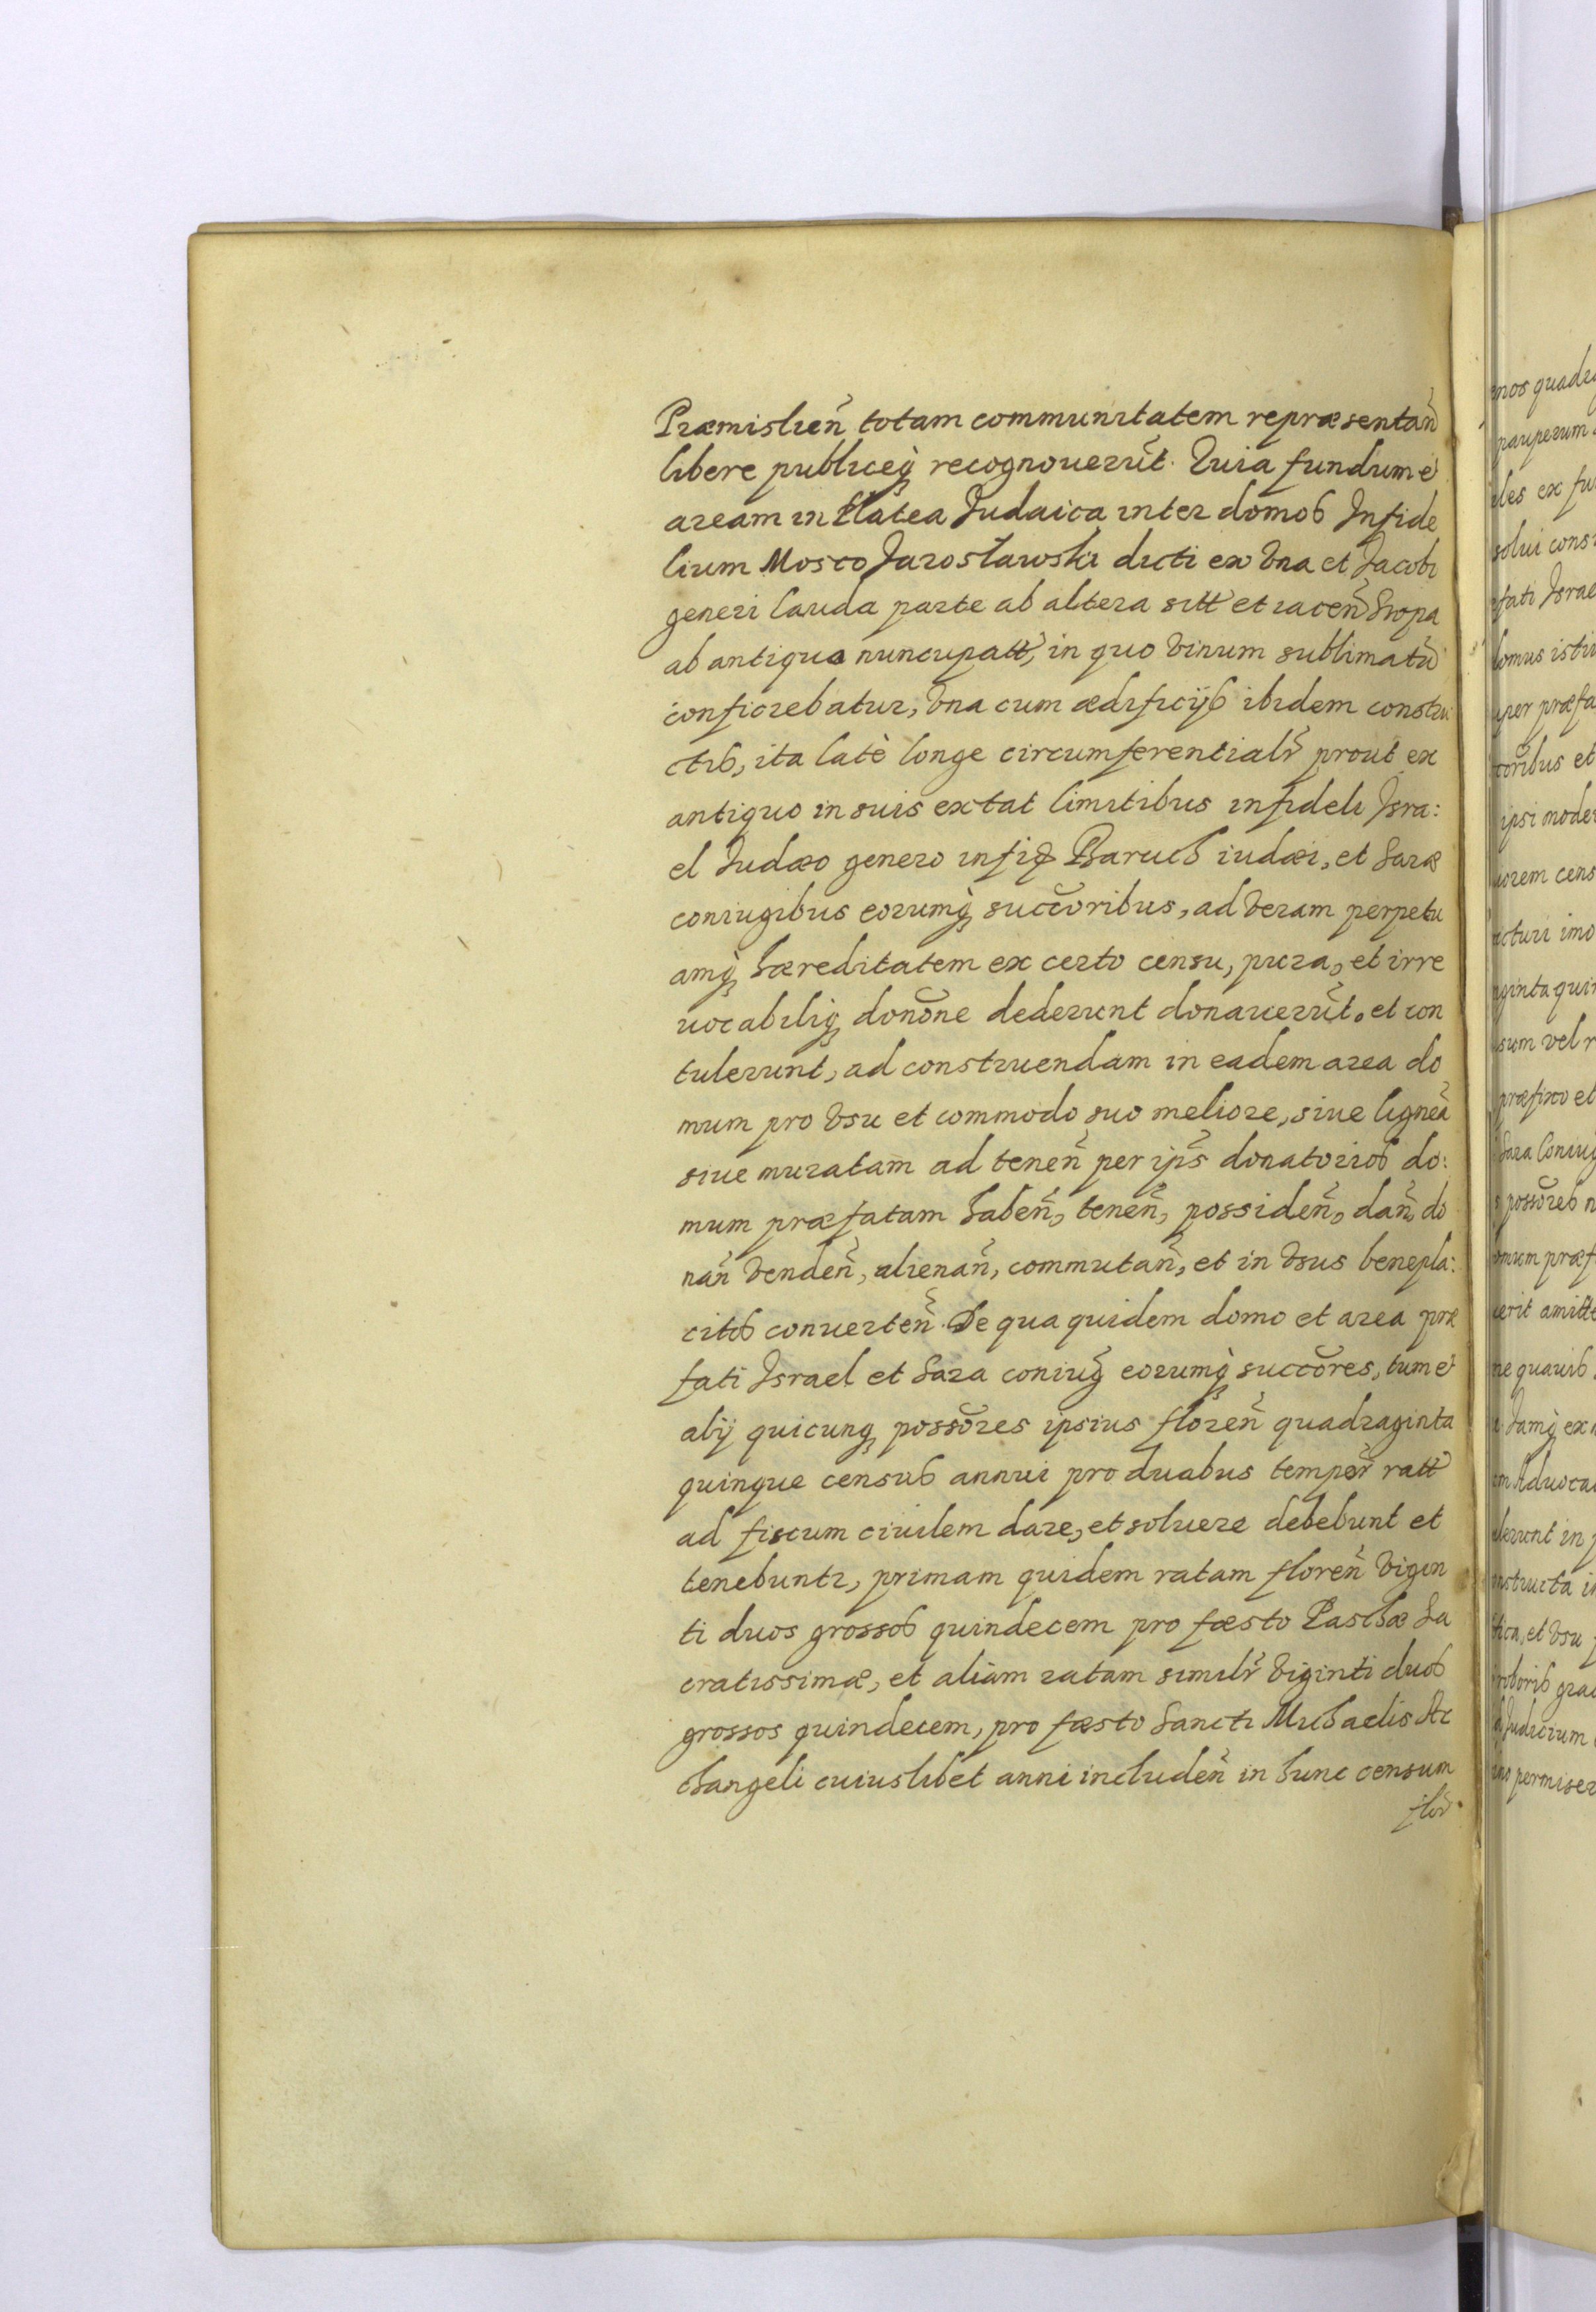 Præmislien̄ totam communitatem repræsentan̄
libere publiceq̨ recognouerūt. Quia fundum e
aream in Platea Judaica inter domos Infide
lium Mosco Jarosławski dicti ex vna et Jacobi
generi Lauda parte ab altera sitt et iacen̄ Sropa
ab antiquo nuncupatt, in quo vinum sublimatū
conficiebatur, vna cum ædificijs ibidem constru
ctis, ita latè longe circumferentialr̄ prout ex
antiquo in suis extat limitibus infideli Isra:
el Judæo genero infiđ Baruch iudæi, et Saræ
coniugibus eorumq̨ succōribus, ad veram perpetu
amq̨ hæreditatem ex certo censu, pura, et irre
uocabiliq̨ donōne dederunt donauerūt, et con
tulerunt, ad construendam in eadem area do
mum pro vsu et commodo suo meliore, siue ligneā
siue muratam ad tenen̄ per ips̄ donatorios do:
mum præfatam haben̄, tenen̄, possiden̄, dan̄, do
nan̄ venden̄, alienan̄, commutan̄, et in vsus benepla:
citos conuerten̄. De qua quidem domo et area præ
fati Israel et Sara coniug̃ eorumq̨ succōres, tum e
alij quicunq̨ possōres ipsius floren̄ quadraginta
quinque census annui pro duabus temper̄ ratt
ad fiscum ciuilem dare, et soluere debebunt et
tenebuntr, primam quidem ratam floren̄ vigin
ti duos grossos quindecem pro fæsto Paschæ Sa
cratissimæ, et aliam ratam similr̄ viginti duos
grossos quindecem, pro fæsto Sancti Michaelis Ar
changeli cuiuslibet anni includen̄ in hunc censum
flor̄